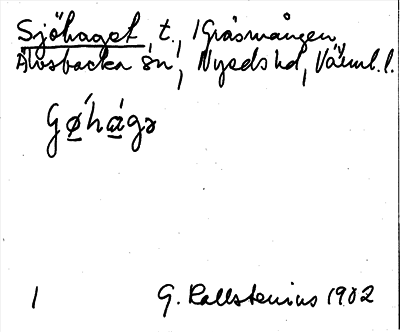 Sjöhaget t., Gräsmången
Älvsbacka sn, Nyeds hd, Värml. l.
Gǿ̲hà̲gə
1 G. Kallstenius 1902